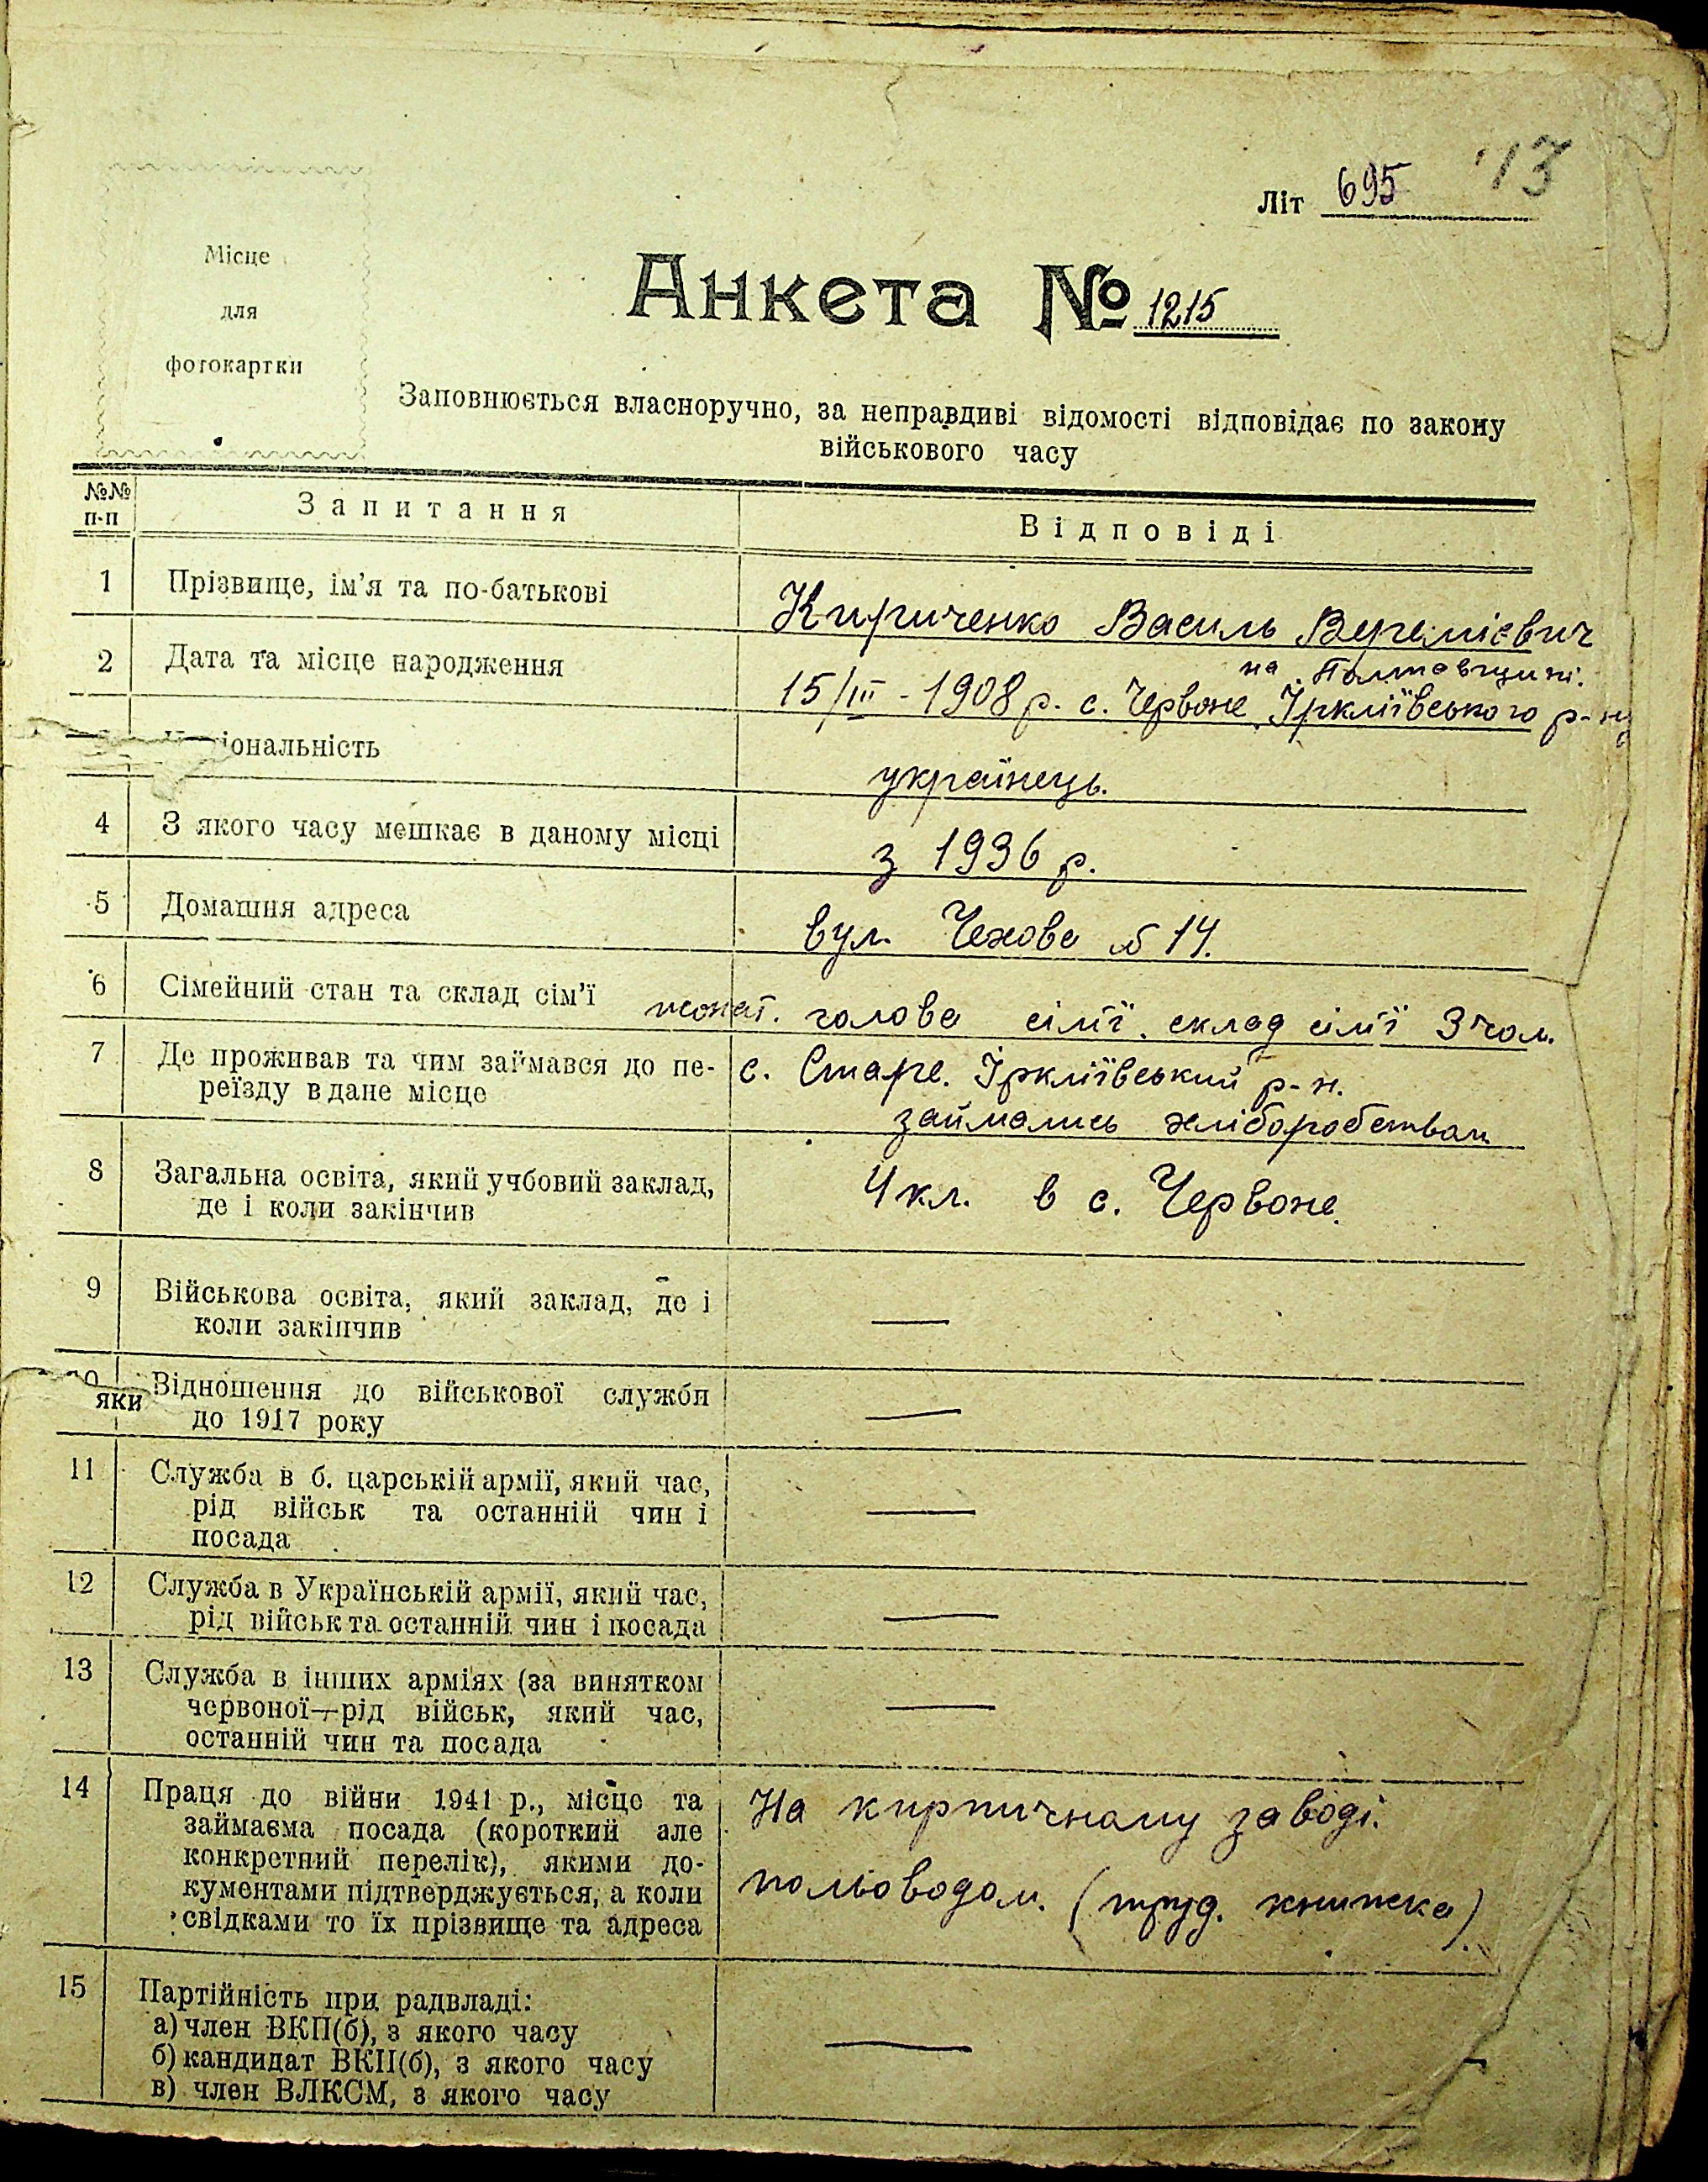 Літ 695 13
Місце
для
фотокартки
Анкета № 1215
Заповнюється власноручно, за неправдиві відомості відповідає по закону
військового часу
№№ п-п Запитання Відповіді
1 Прізвище, ім'я та по-батькові Кириченко Василь Веремієвич
2 Дата та місце народження 15/III - 1908 р. с. Червоне Іркліївського р-ну
на Полтавщині.
іональність українець.
4 З якого часу мешкає в даному місці з 1936 р.
5 Домашня адреса вул. Чехова № 14.
6 Сімейний стан та склад сім'ї жонат. голова сімʼї. склад сімʼї 3 чол.
7 Де проживав та чим займався до пе- с. Старе. Іркліївський р-н.
реїзду в дане місце займались хліборобством
8 Загальна освіта, який учбовий заклад, 4 кл. в с. Червоне.
де і коли закінчив
9 Військова освіта, який заклад, де і
коли закінчив —
яки Відношення до військової служби
до 1917 року —
11 Служба в б. царській армії, який час,
рід військ та останній чин і —
посада
12 Служба в Українській армії, який час,
рід військ та останній чин і посада —
13 Служба в інших арміях (за винятком
червоної—рід військ, який час, —
останній чин та посада
14 Праця до війни 1941 р., місце та На кирпичному заводі.
займаєма посада (короткий але
конкретний перелік), якими до-
кументами підтверджується, а коли польоводом. (труд. книжка).
свідками то їх прізвище та адреса
15 Партійність при радвладі:
а) член ВКП(б), з якого часу —
б) кандидат ВКП(б), з якого часу
в) член ВЛКСМ, з якого часу